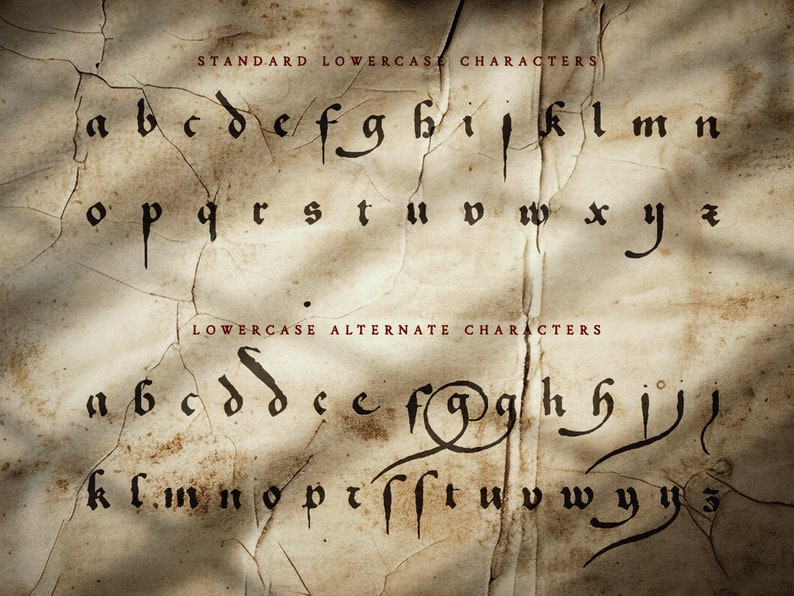 STANDARD LOWERCASE CHARACTERS
a b c d e f g h i j k l m n
o p q r s t u v w x y z
LOWERCASE ALTERNATE CHARACTERS
a b c d d e e f g g h h j j j
k l m n o p r s s t u v w y y z